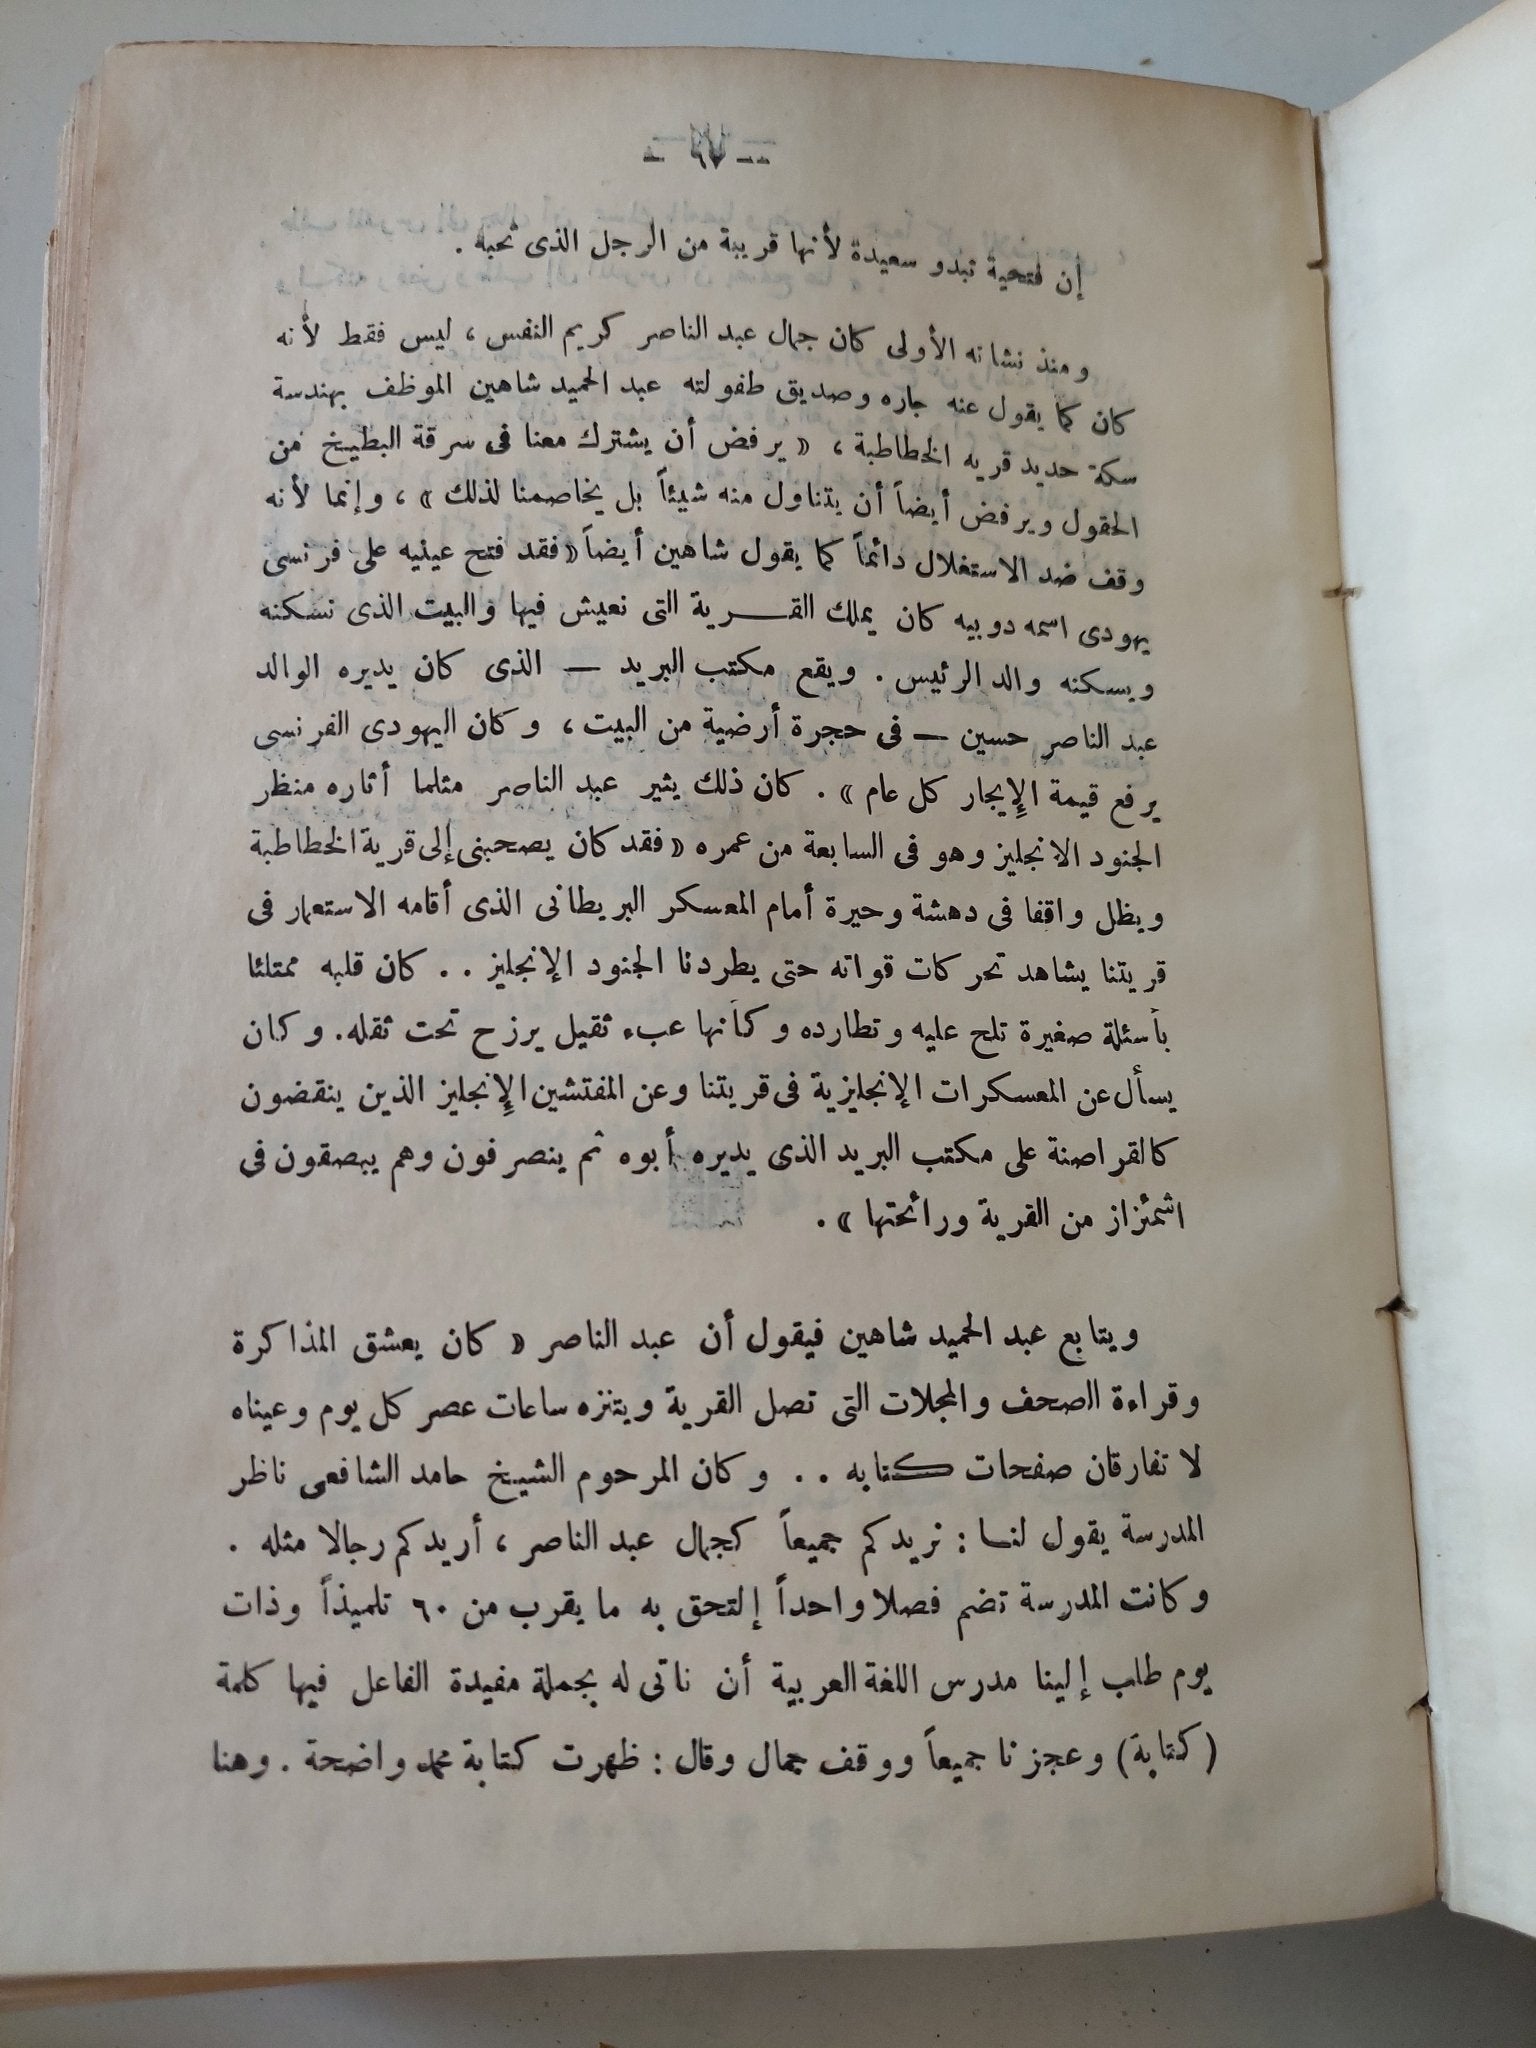 إن فتحية تبدو سعيدة لأنها قريبة من الرجل الذى تحبه .
ومنذ نشاته الأولى كان جمال عبد الناصر كريم النفس ، ليس فقط لأنه
كان كما يقول عنه جاره وصديق طفولته عبد الحميد شاهين الموظف بهندسة
سكة حديد قريه الخطاطبة ، « يرفض أن يشترك معنا فى سرقة البطيخ من
الحقول ويرفض أيضاً أن يتناول منه شيئاً بل يخاصمنا لذلك » ، وإنما لأنه
وقف ضد الاستغلال دائماً كما يقول شاهين أيضاً « فقد فتح عينيه على فرنسى
يهودى اسمه دوبيه كان يملك القرية التى نعيش فيها والبيت الذى نسكنه
ويسكنه والد الرئيس . ويقع مكتب البريد — الذى كان يديره الوالد
عبد الناصر حسين — فى حجرة أرضية من البيت ، وكان اليهودى الفرنسى
يرفع قيمة الإيجار كل عام » . كان ذلك يثير عبد الناصر مثلما أثاره منظر
الجنود الانجليز وهو فى السابعة من عمره « فقد كان يصحبنى إلى قرية الخطاطبة
ويظل واقفا فى دهشة وحيرة أمام المعسكر البريطانى الذى أقامه الاستعمار فى
قريتنا يشاهد تحركات قواته حتى يطردنا الجنود الإنجليز . . كان قلبه ممتلئا
بأسئلة صغيرة تلح عليه وتطارده وكأنها عبء ثقيل يرزح تحت ثقله. وكان
يسأل عن المعسكرات الإنجليزية فى قريتنا وعن المفتشين الإنجليز الذين ينقضون
كالقراصنة على مكتب البريد الذى يديره أبوه ثم ينصرفون وهم يبصقون فى
اشمئزاز من القرية ورائحتها » .
ويتابع عبد الحميد شاهين فيقول أن عبد الناصر « كان يعشق المذاكرة
وقراءة الصحف والمجلات التى تصل القرية ويتنزه ساعات عصر كل يوم وعيناه
لا تفارقان صفحات كتابه . . وكان المرحوم الشيخ حامد الشافعى ناظر
المدرسة يقول لنا : نريدكم جميعاً كجمال عبد الناصر ، أريدكم رجالا مثله .
وكانت المدرسة تضم فصلا واحداً إلتحق به ما يقرب من ٦٠ تلميذاً وذات
يوم طلب إلينا مدرس اللغة العربية أن ناتى له بجملة مفيدة الفاعل فيها كلمة
(كتابة) وعجزنا جميعاً ووقف جمال وقال : ظهرت كتابة محمد واضحة . وهنا